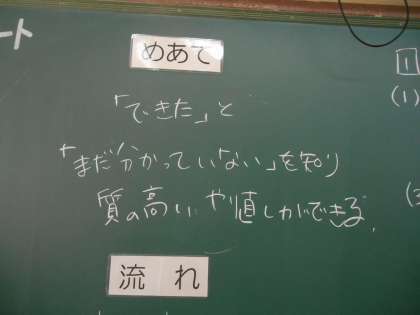 ート
めあて
「できた」と
「まだ分かっていない」を知り
質の高いやり直しができる。
流れ
1
(1)